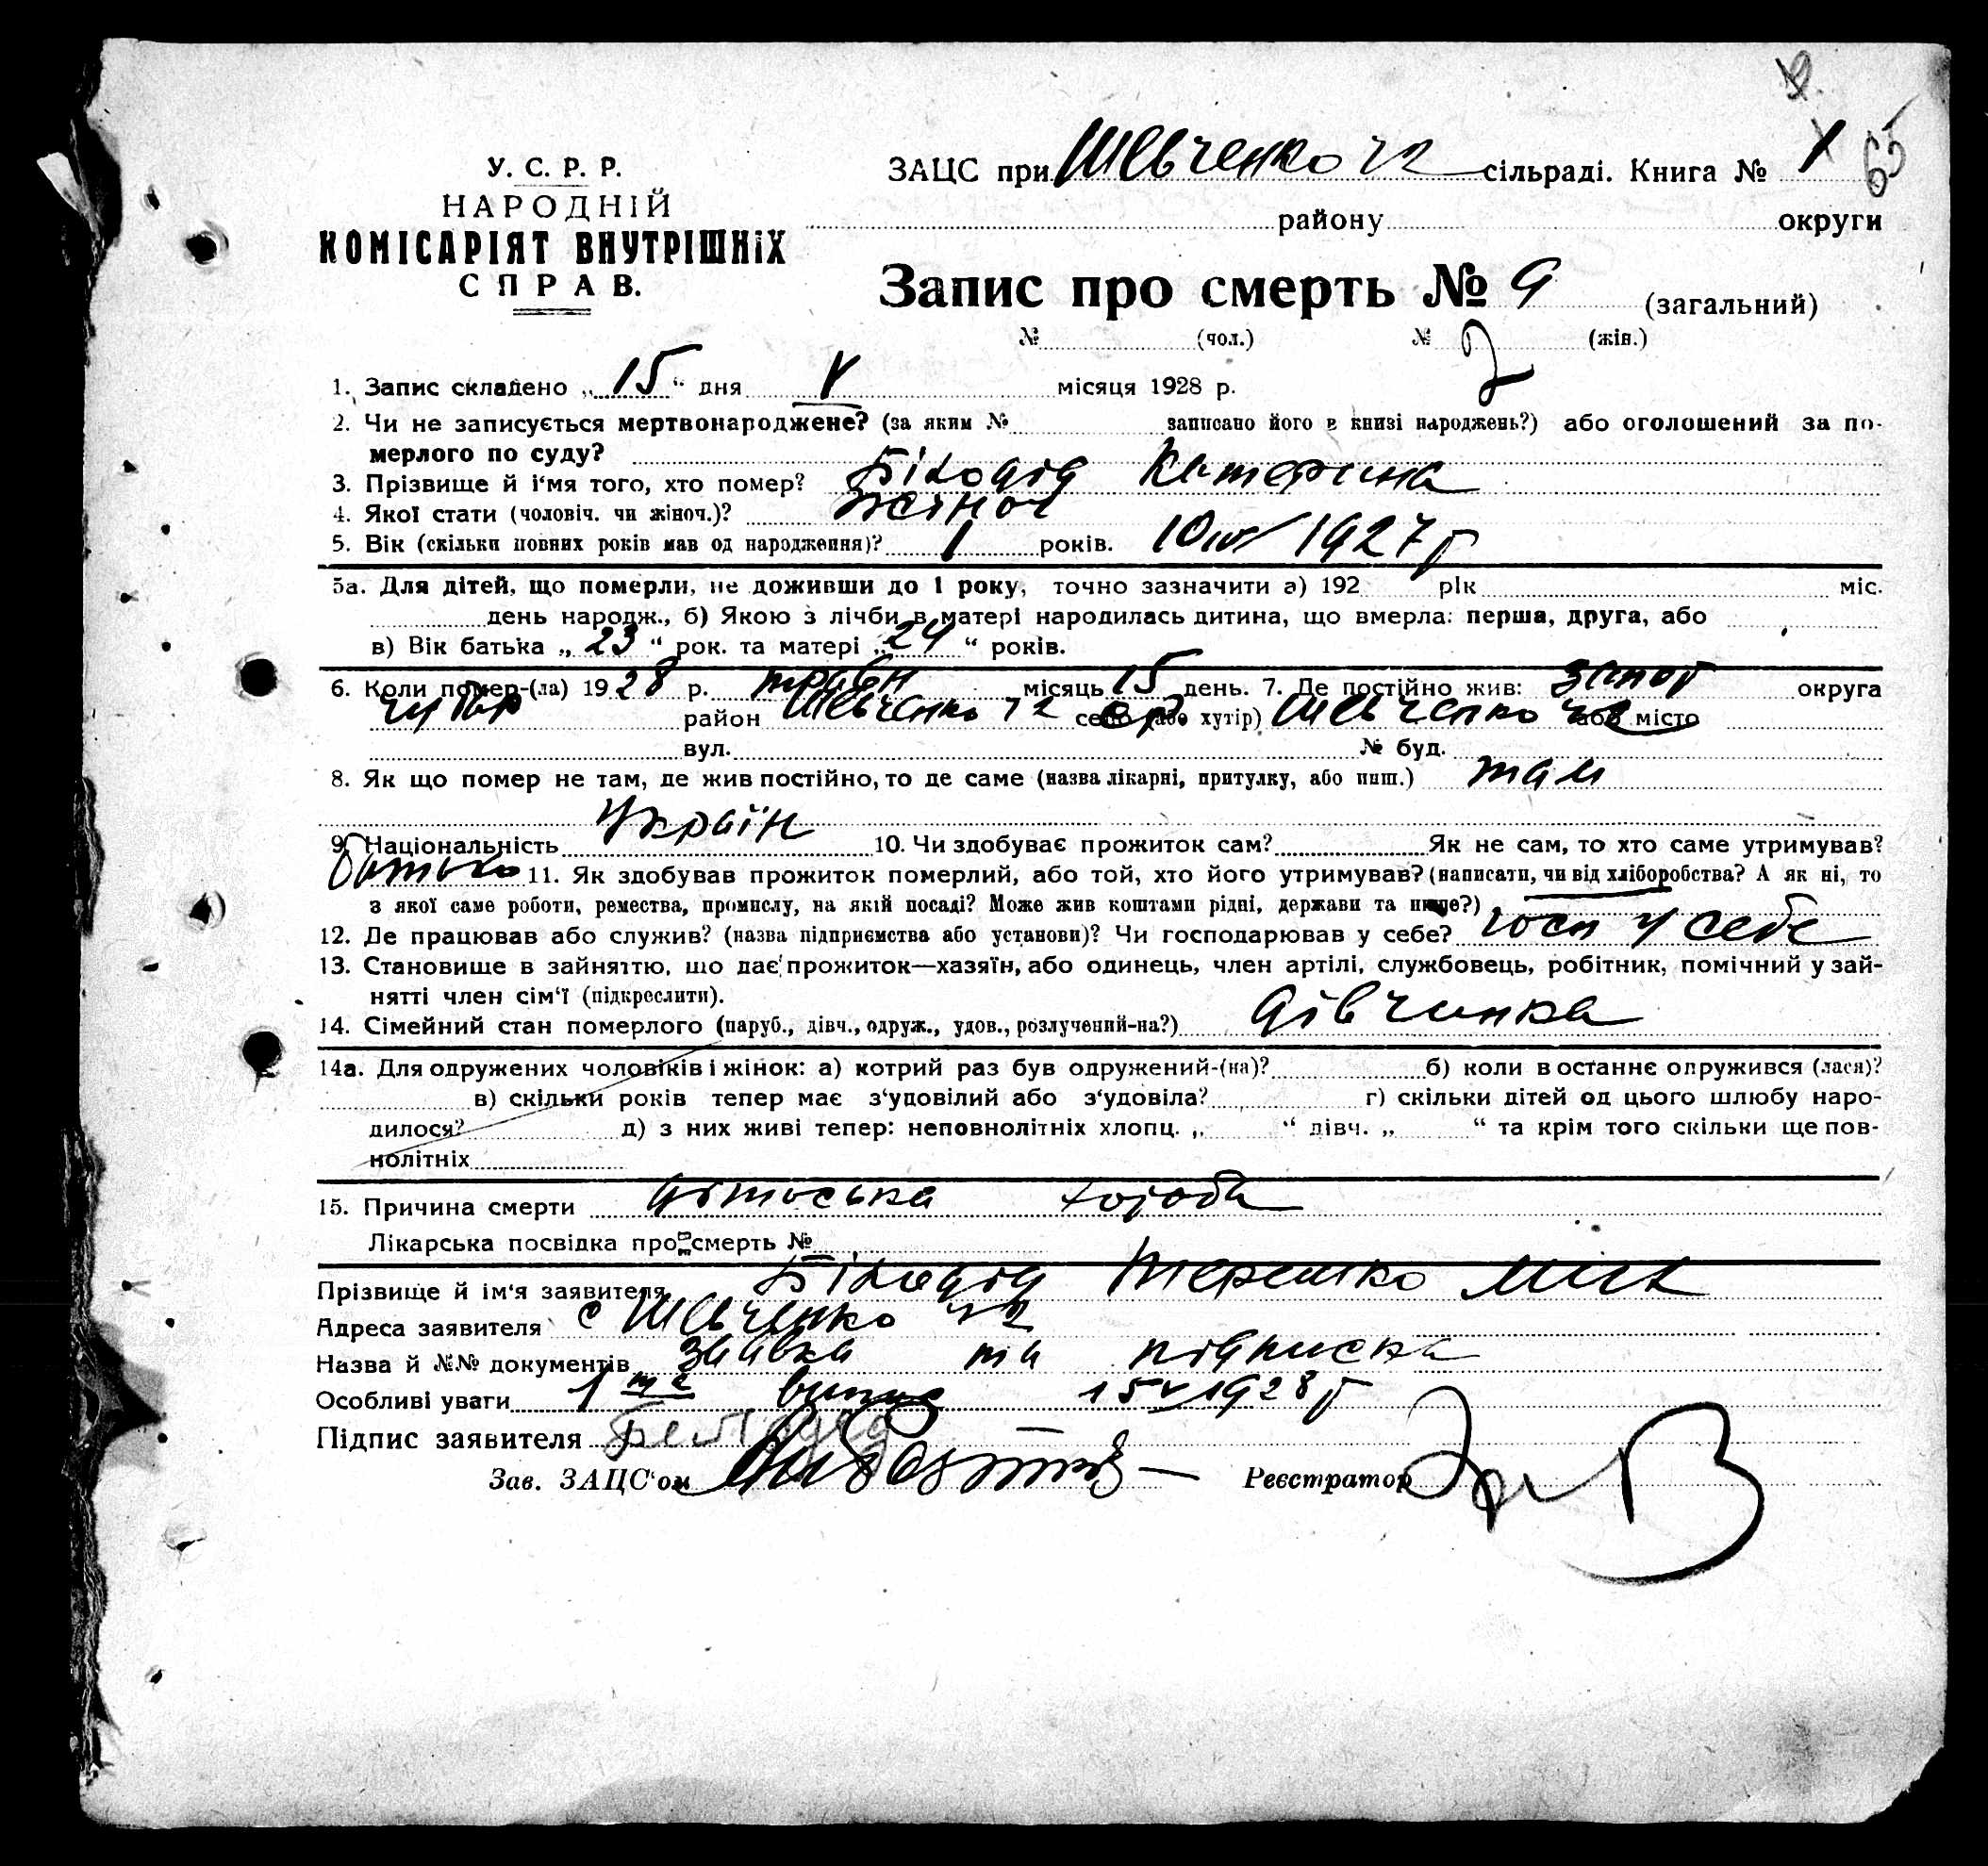 65
У. С. Р. Р.
НАРОДНІЙ
КОМІСАРІЯТ ВНУТРІШНІХ
СПРАВ.
ЗАЦС при Шевченко сільраді. Книга № 1
району округи
Запис про смерть № 9 (загальний)
№ (чол.) № 2 (жін.)
1. Запис складено „15“ дня V місяця 1928 р.
2. Чи не записується мертвонароджене? (за яким № записано його в книзі народжень?) або оголошений за по-
мерлого по суду?
3. Прізвище й і'мя того, хто помер? Білодід Катерина
4. Якої стати (чоловіч. чи жіноч.)? жіноч
5. Вік (скільки повних років мав од народження)? 1 років. 10/IV 1927 г
5а. Для дітей, що померли, не доживши до 1 року, точно зазначити а) 192 рік міс.
день народж., б) Якою з лічби в матері народилась дитина, що вмерла: перша, друга, або
в) Вік батька „23“ рок. та матері „24“ років.
6. Коли помер-(ла) 1928 р. травн місяць 15 день. 7. Де постійно жив: Запор округа
чубар район Шевченко село (або хутір) Шевченко або місто
вул. № буд.
8. Як що помер не там, де жив постійно, то де саме (назва лікарні, притулку, або инш.) там
9. Національність Україн 10. Чи здобуває прожиток сам? Як не сам, то хто саме утримував?
батько 11. Як здобував прожиток померлий, або той, хто його утримував? (написати, чи від хліборобства? А як ні, то
з якої саме роботи, ремества, промислу, на якій посаді? Може жив коштами рідні, держави та инше?)
12. Де працював або служив? (назва підприємства або установи)? Чи господарював у себе? госп у себе
13. Становище в зайняттю, що дає прожиток—хазяїн, або одинець, член артілі, службовець, робітник, помічний у зай-
нятті член сім'ї (підкреслити).
14. Сімейний стан померлого (паруб., дівч., одруж., удов., розлучений-на?) дівчинка
14а. Для одружених чоловіків і жінок: а) котрий раз був одружений-(на)? б) коли в останнє одружився (лася)?
в) скільки років тепер має з'удовілий або з'удовіла? г) скільки дітей од цього шлюбу наро-
дилося? д) з них живі тепер: неповнолітніх хлопц. „ “ дівч. „ “ та крім того скільки ще пов-
нолітніх
15. Причина смерти дітоська хороба
Лікарська посвідка про смерть №
Прізвище й ім'я заявителя Білодід Терешко Мих
Адреса заявителя с Шевченко
Назва й №№ документів заявка та підписка
Особливі уваги 1 випис 15 V 1928 г
Підпис заявителя Белодед
Зав. ЗАЦС'ом Реєстратор